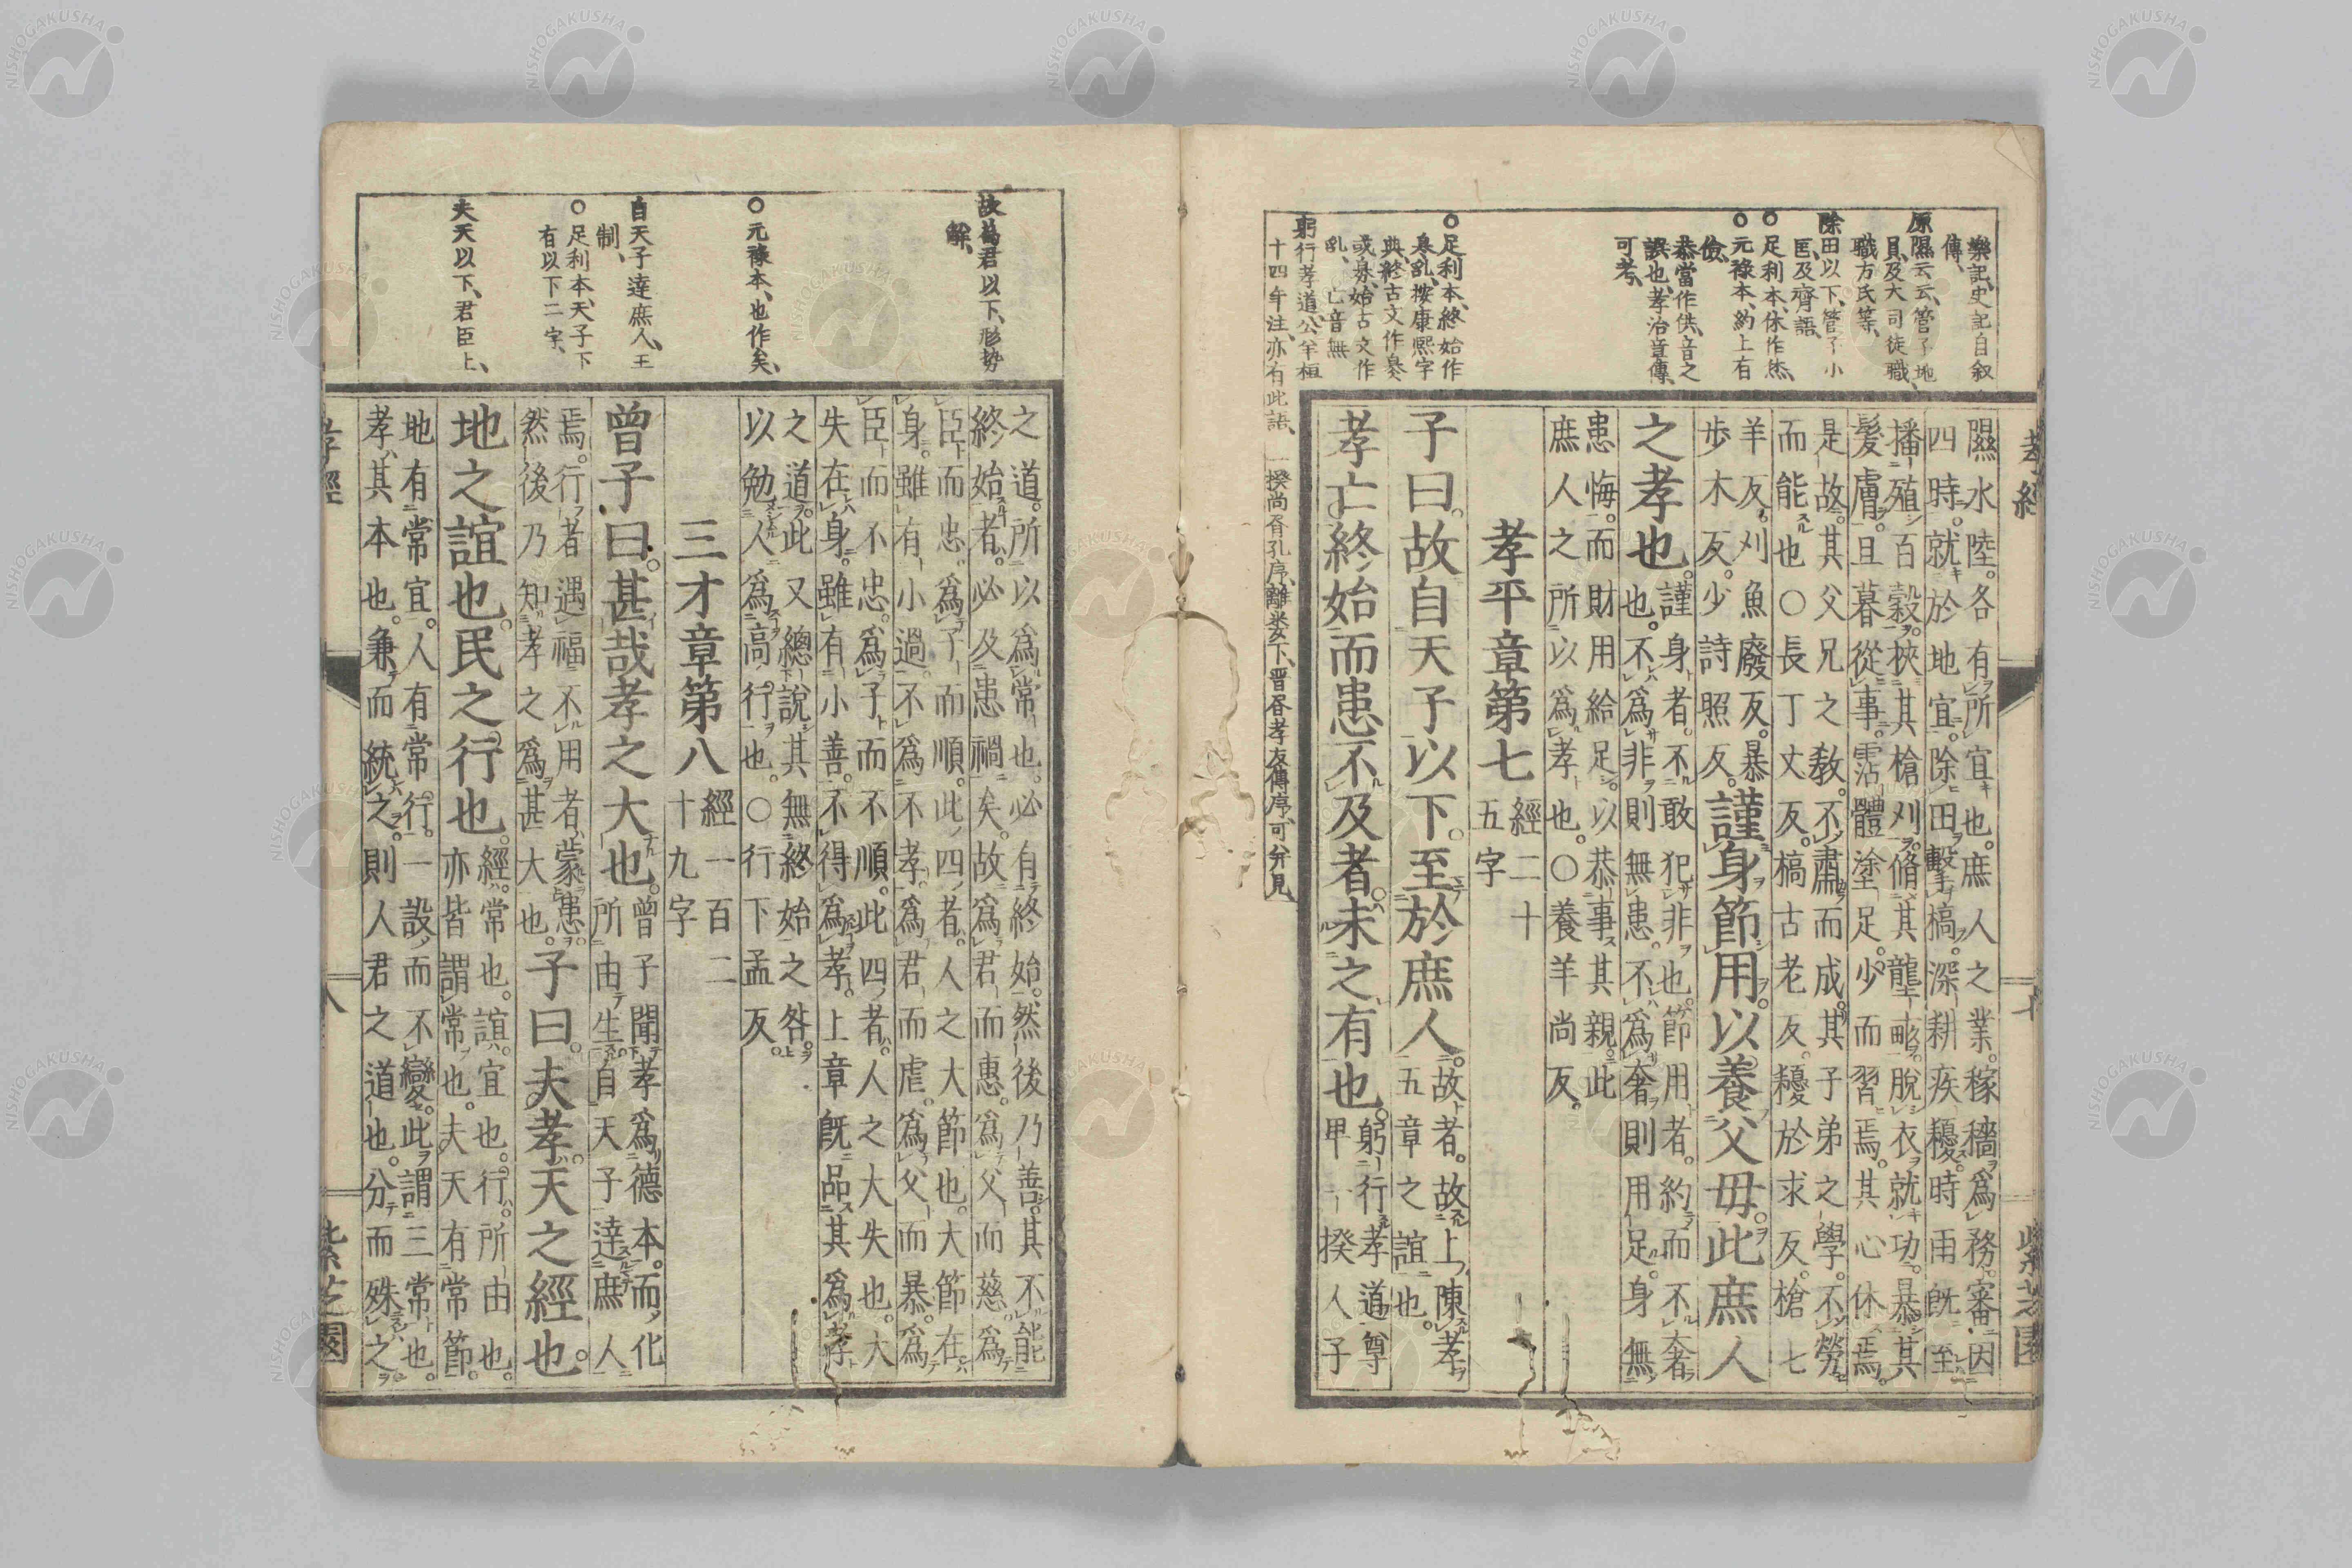 樂記、史記自叙
傳、
原隰云云、管子地
員、及大司徒職、
職方氏等、
除田以下、管子小
匡、及齊語、
○足利本、休作烋、
○元祿本、約上有
儉、
恭當作供、音之
誤也、孝治章傳、
可考、
○足利本、終始作
按康熙字
典、終古文作
或 始古文作
亡音無
躬行孝道、公羊桓
十四年注、亦有此語、一揆尚書孔序、離娄下、晋書孝友傳序、可分見、
孝經
七
紫芝園
隰水陸。各有所宜也。庶人之業。稼穡爲務。審因
四時。就於地宜。除田擊槁。深耕疾耰。時雨既至
播殖百穀。挾其槍刈。脩其壟畝。脫衣就功。暴其
髮膚。旦暮從事。霑體塗足。少而習焉。其心休焉。
是故其父兄之敎。不肅而成。其子弟之學。不勞
而能也○長丁丈反。槁古老反。耰於求反。槍七
羊反。刈魚廢反。暴
步木反。少詩照反。
謹身節用。以養父母。此庶人
之孝也。
謹身者。不敢犯非也。節用者。約而不奢
也。不爲非則無患。不爲奢則用足。身無
患悔。而財用給足。以恭事其親。此
庶人之所以爲孝也。○養羊尚反。
孝平章第七
經二十
五字
子曰。故自天子以下。至於庶人。
故者。故上陳孝
五章之誼也。
孝亡終始。而患不及者。未之有也。
躬行孝道尊
甲一揆人子
故爲君以下、形勢
解、
○元祿本、也作矣、
自天子達庶人、王
制、
○足利本、天子下
有以下二字、
夫天以下、君臣上、
之道。所以爲常也。必有終始。然後乃善。其不能
終始者。必及患禍矣。故爲君而惠。爲父而慈。爲
臣而忠。爲子而順。此四者。人之大節也。大節在
身。雖有小過。不爲不孝。爲君而虐。爲父而暴。爲
臣而不忠。爲子而不順。此四者。人之大失也。大
失在身。雖有小善。不得爲孝。上章既品其爲孝
之道。此又總說其無終始之咎。
以勉人爲高行也。○行下孟反。
三才章第八
經一百二
十九字
曾子曰。甚哉孝之大也。
曾子聞孝爲德本。而化
所由生。自天子達庶人
焉。行者遇福。不用者蒙患。
然後乃知孝之爲甚大也。
子曰。夫孝。天之經也
地之誼也。民之行也。
經。常也。誼。宜也。行。所由也。
亦皆謂常也。夫天有常節。
地有常宜。人有常行。一設而不變。此謂三常也。
孝。其本也。兼而統之。則人君之道也。分而殊之
孝經
八
紫芝園